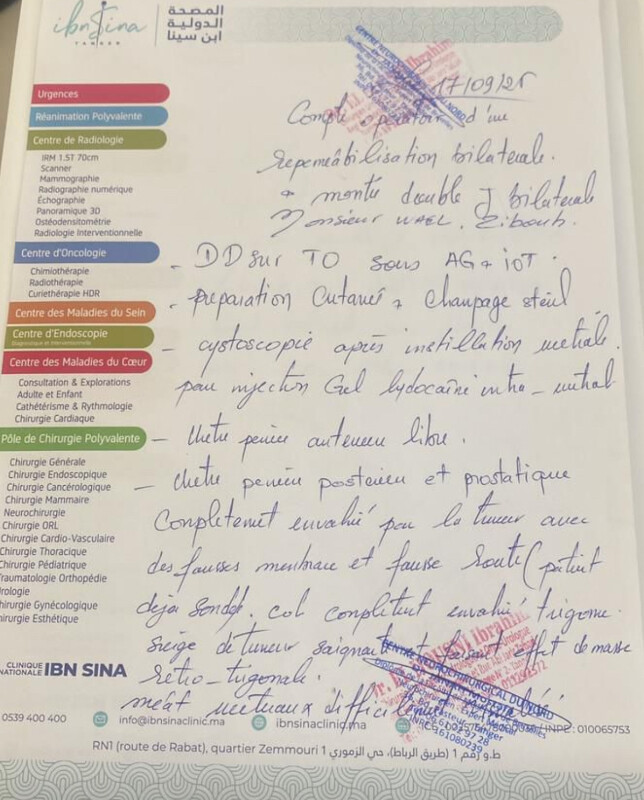 ibn Sina
TANGER
المصحة
الدولية
ابن سينا
17/09/25
Compte opératoir d'une
repermeabilisation bilaterale.
+ montée double J bilaterale
Monsieur WAEL. Zibouh.
- DD sur TO sous AG + iOT.
- preparation Cutané + champage stéril
- cystoscopie après instillation uretrale.
par injection Gel lydocaïne intra-uretral
- Uretre penien anterieur libre.
- Uretre penien posterieur et prostatique
Completemet envahié par la tumeur avec
des fausses membrane et fausse route (patient
deja sondé. col completent envahié, trigone
siège de tumeur saignante faisant effet de masse
retro-trigonale.
méat uretéraux difficilement
Urgences
Réanimation Polyvalente
Centre de Radiologie
IRM 1.5T 70cm
Scanner
Mammographie
Radiographie numérique
Échographie
Panoramique 3D
Ostéodensitométrie
Radiologie Interventionnelle
Centre d'Oncologie
Chimiothérapie
Radiothérapie
Curiethérapie HDR
Centre des Maladies du Sein
Centre d'Endoscopie
Diagnostique et Interventionnelle
Centre des Maladies du Cœur
Consultation & Explorations
Adulte et Enfant
Cathétérisme & Rythmologie
Chirurgie Cardiaque
Pôle de Chirurgie Polyvalente
Chirurgie Générale
Chirurgie Endoscopique
Chirurgie Cancérologique
Chirurgie Mammaire
Neurochirurgie
Chirurgie ORL
Chirurgie Cardio-Vasculaire
Chirurgie Thoracique
Chirurgie Pédiatrique
Traumatologie Orthopédie
Urologie
Chirurgie Gynécologique
Chirurgie Esthétique
CENTRE NEUROCHIRURGICAL DU NORD
Ibrahim
CLINIQUE
NATIONALE IBN SINA
0539 400 400
info@ibnsinaclinic.ma
ibnsinaclinic.ma
INPE: 010065753
RN1 (route de Rabat), quartier Zemmouri 1 ط.و رقم 1 (طريق الرباط)، حي الزموري